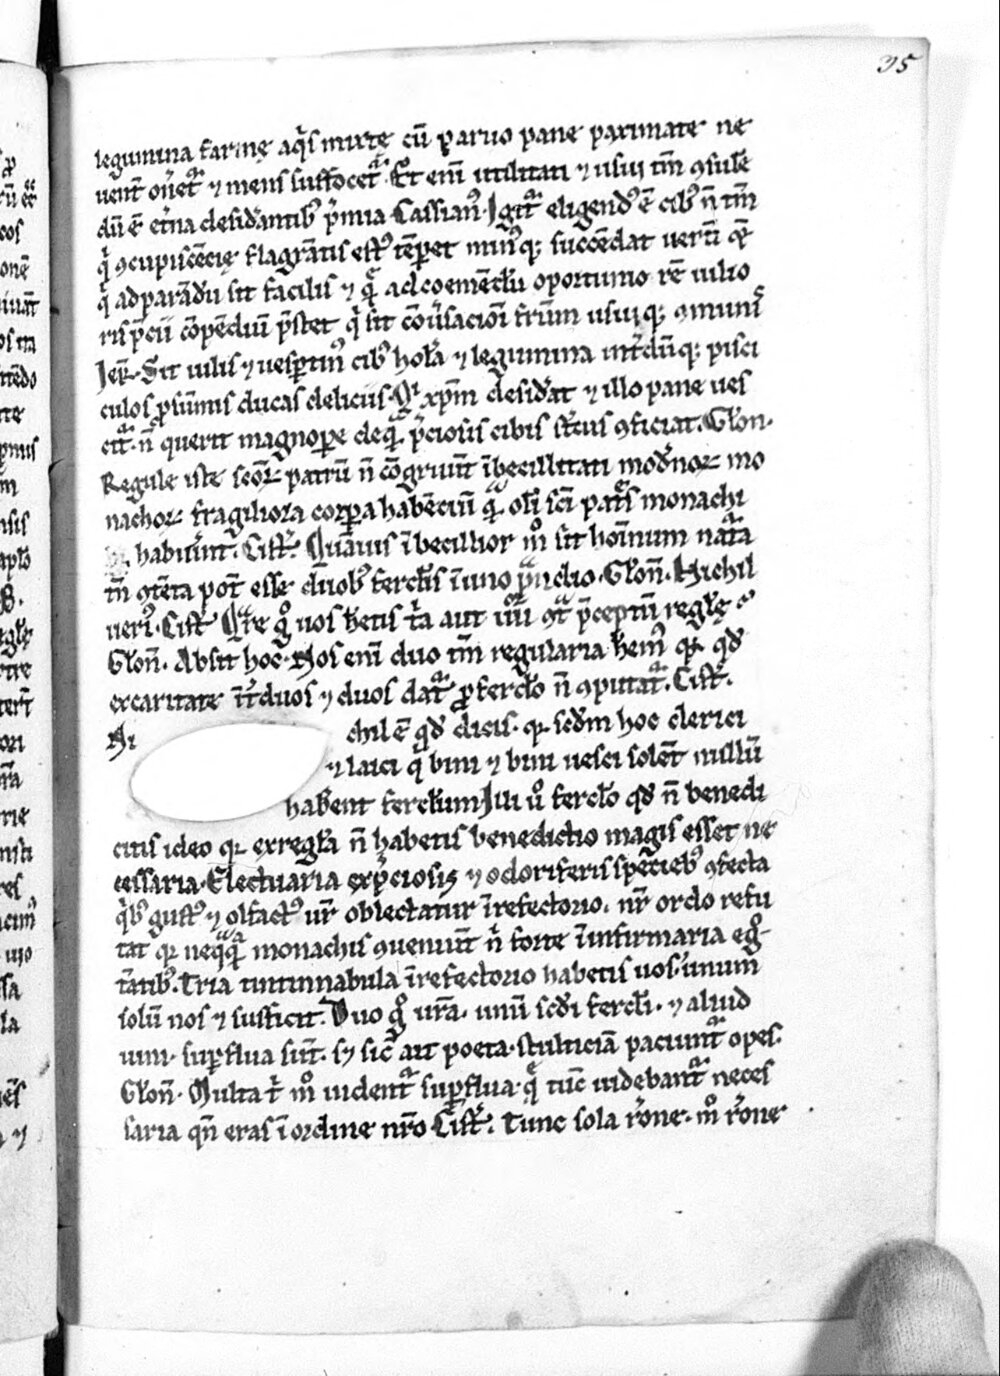 35
legumina farinę aq̇s mixtę cū paruo pane paximate ne
uent̄ oṅet̃ ⁊ mens suffocet̃. Et eni utilitati ⁊ usui tm̄ ꝯsulē
dū ē et̄na desid̄antib; p̄mia Cassian⁹. Igit̃ eligend⁹ ē cib⁹ n̄ tm̄
q̇ ꝯcupiscēcię flagrātis est⁹ tēperet min⁹q; succendat uerū &
q̇ adparādū sit facilis ⁊ quē ad coemēdū oportunio rē uilio
ris p̄cii cōpēdiū p̄stet q̇ sit cōu̇sacioni frūm usuiq; ꝯmunis
Ier̄. Sit uilis ⁊ uesp̱tin⁹ cib⁹ hol̄a ⁊ legumina int̄dūq; pisci
culos p̱ sūmis ducas deliciis. Qi xp̄m desid̄at ⁊ illo pane ues
cit̃. n̄ querit magnop̱e de q̇ p̄ciosis cibis st̄cus ꝯficiat. Glōn.
Regule iste sc̄oꝝ patrū n̄ cōgruūt ībecillitati mod̄noꝝ mo
nachoꝝ fragiliora corp̱a habēciū q̄ oli sc̄i pat̄s monachi
habuer̄int. Cist̄. Quāuis ībecillior m̊ sit hominum nat̄a
tm̄ ꝯtēta pot̄ esse duob⁹ ferclis ī uno prandio. Glōn̄. Nichil
ueri⁹. Cist̄ Qare g̊ uos hetis t̄a aut iiij ꝯt̄ p̄ceptū reglę
Glōn̄. Absit hoc. Nos eni duo tm̄ regularia hem⁹ qꝛ qd̄
ex caritate īt̄ duos ⁊ duos dat̃ ꝓ ferclo n̄ ꝯputat̃. Cist̄.
Ni chil ē qd̄ dicis. qꝛ scd̄m hoc clerici
⁊ laici q̇ bini ⁊ bini uesci solēt nullū
habent ferclum Illi u̇ ferclo qd̄ n̄ benedi
citis ideo qꝛ ex regl̄a n̄ habetis benedictio magis esset ne
cessaria. Electuaria ex p̄ciosis ⁊ odoriferis speciebꝰ ꝯfecta
q̇b⁹ gust⁹ ⁊ olfact⁹ ur̄ oblectatur ī refectorio. nr̄ ordo refu
tat qꝛ neq̇q̇ monachis ꝯueniūt n̄ forte ī infirmaria eg̊
tātib⁹. Tria tintinnabula ī refectorio habetis uos. unum
solū nos ⁊ sufficit. Duo g̊ ur̄a. unū scd̄i fercli. ⁊ aliud
uini. sup̱flua sūt. s; sic̄ ait poeta. stulticiā paciunt̃ opes.
Glōn̄. Multa t̄ m̊ uident̃ sup̱flua. q̄ tūc uidebant̃ neces
saria qn̄ eras ī ordine nr̄o Cist̄. Tunc sola r̄one. m̊ r̄one